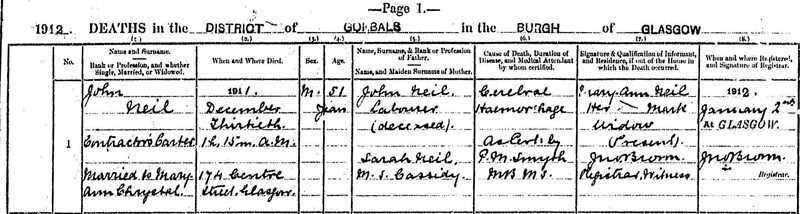 —Page 1.—
1912. DEATHS in the DISTRICT of GORBALS in the BURGH of GLASGOW
(1.) (2.) (3.) (4.) (5.) (6.) (7.) (8.)
No.
Name and Surname.
Rank or Profession, and whether Single, Married, or Widowed.
When and Where Died.
Sex.
Age.
Name, Surname, & Rank or Profession of Father.
Name, and Maiden Surname of Mother.
Cause of Death, Duration of Disease, and Medical Attendant by whom certified.
Signature & Qualification of Informant, and Residence, if out of the House in which the Death occurred.
When and where Registered, and Signature of Registrar.
1
John
Neil
Contractor's Carter
Married to Mary
Ann Chrystal
1911.
December
Thirtieth
1h. 15m. A.M.
174 Centre
Street, Glasgow.
M.
51
Years
John Neil
Labourer
(deceased)
Sarah Neil
M.S. Cassidy
Cerebral
Haemorrhage
As Cert. by
P. M. Smyth
MB MS.
Mary Ann Neil
Her X Mark
Widow
(Present)
Jno Brown.
Registrar, Witness
1912.
January 2nd
At GLASGOW.
Jno Brown.
Registrar.